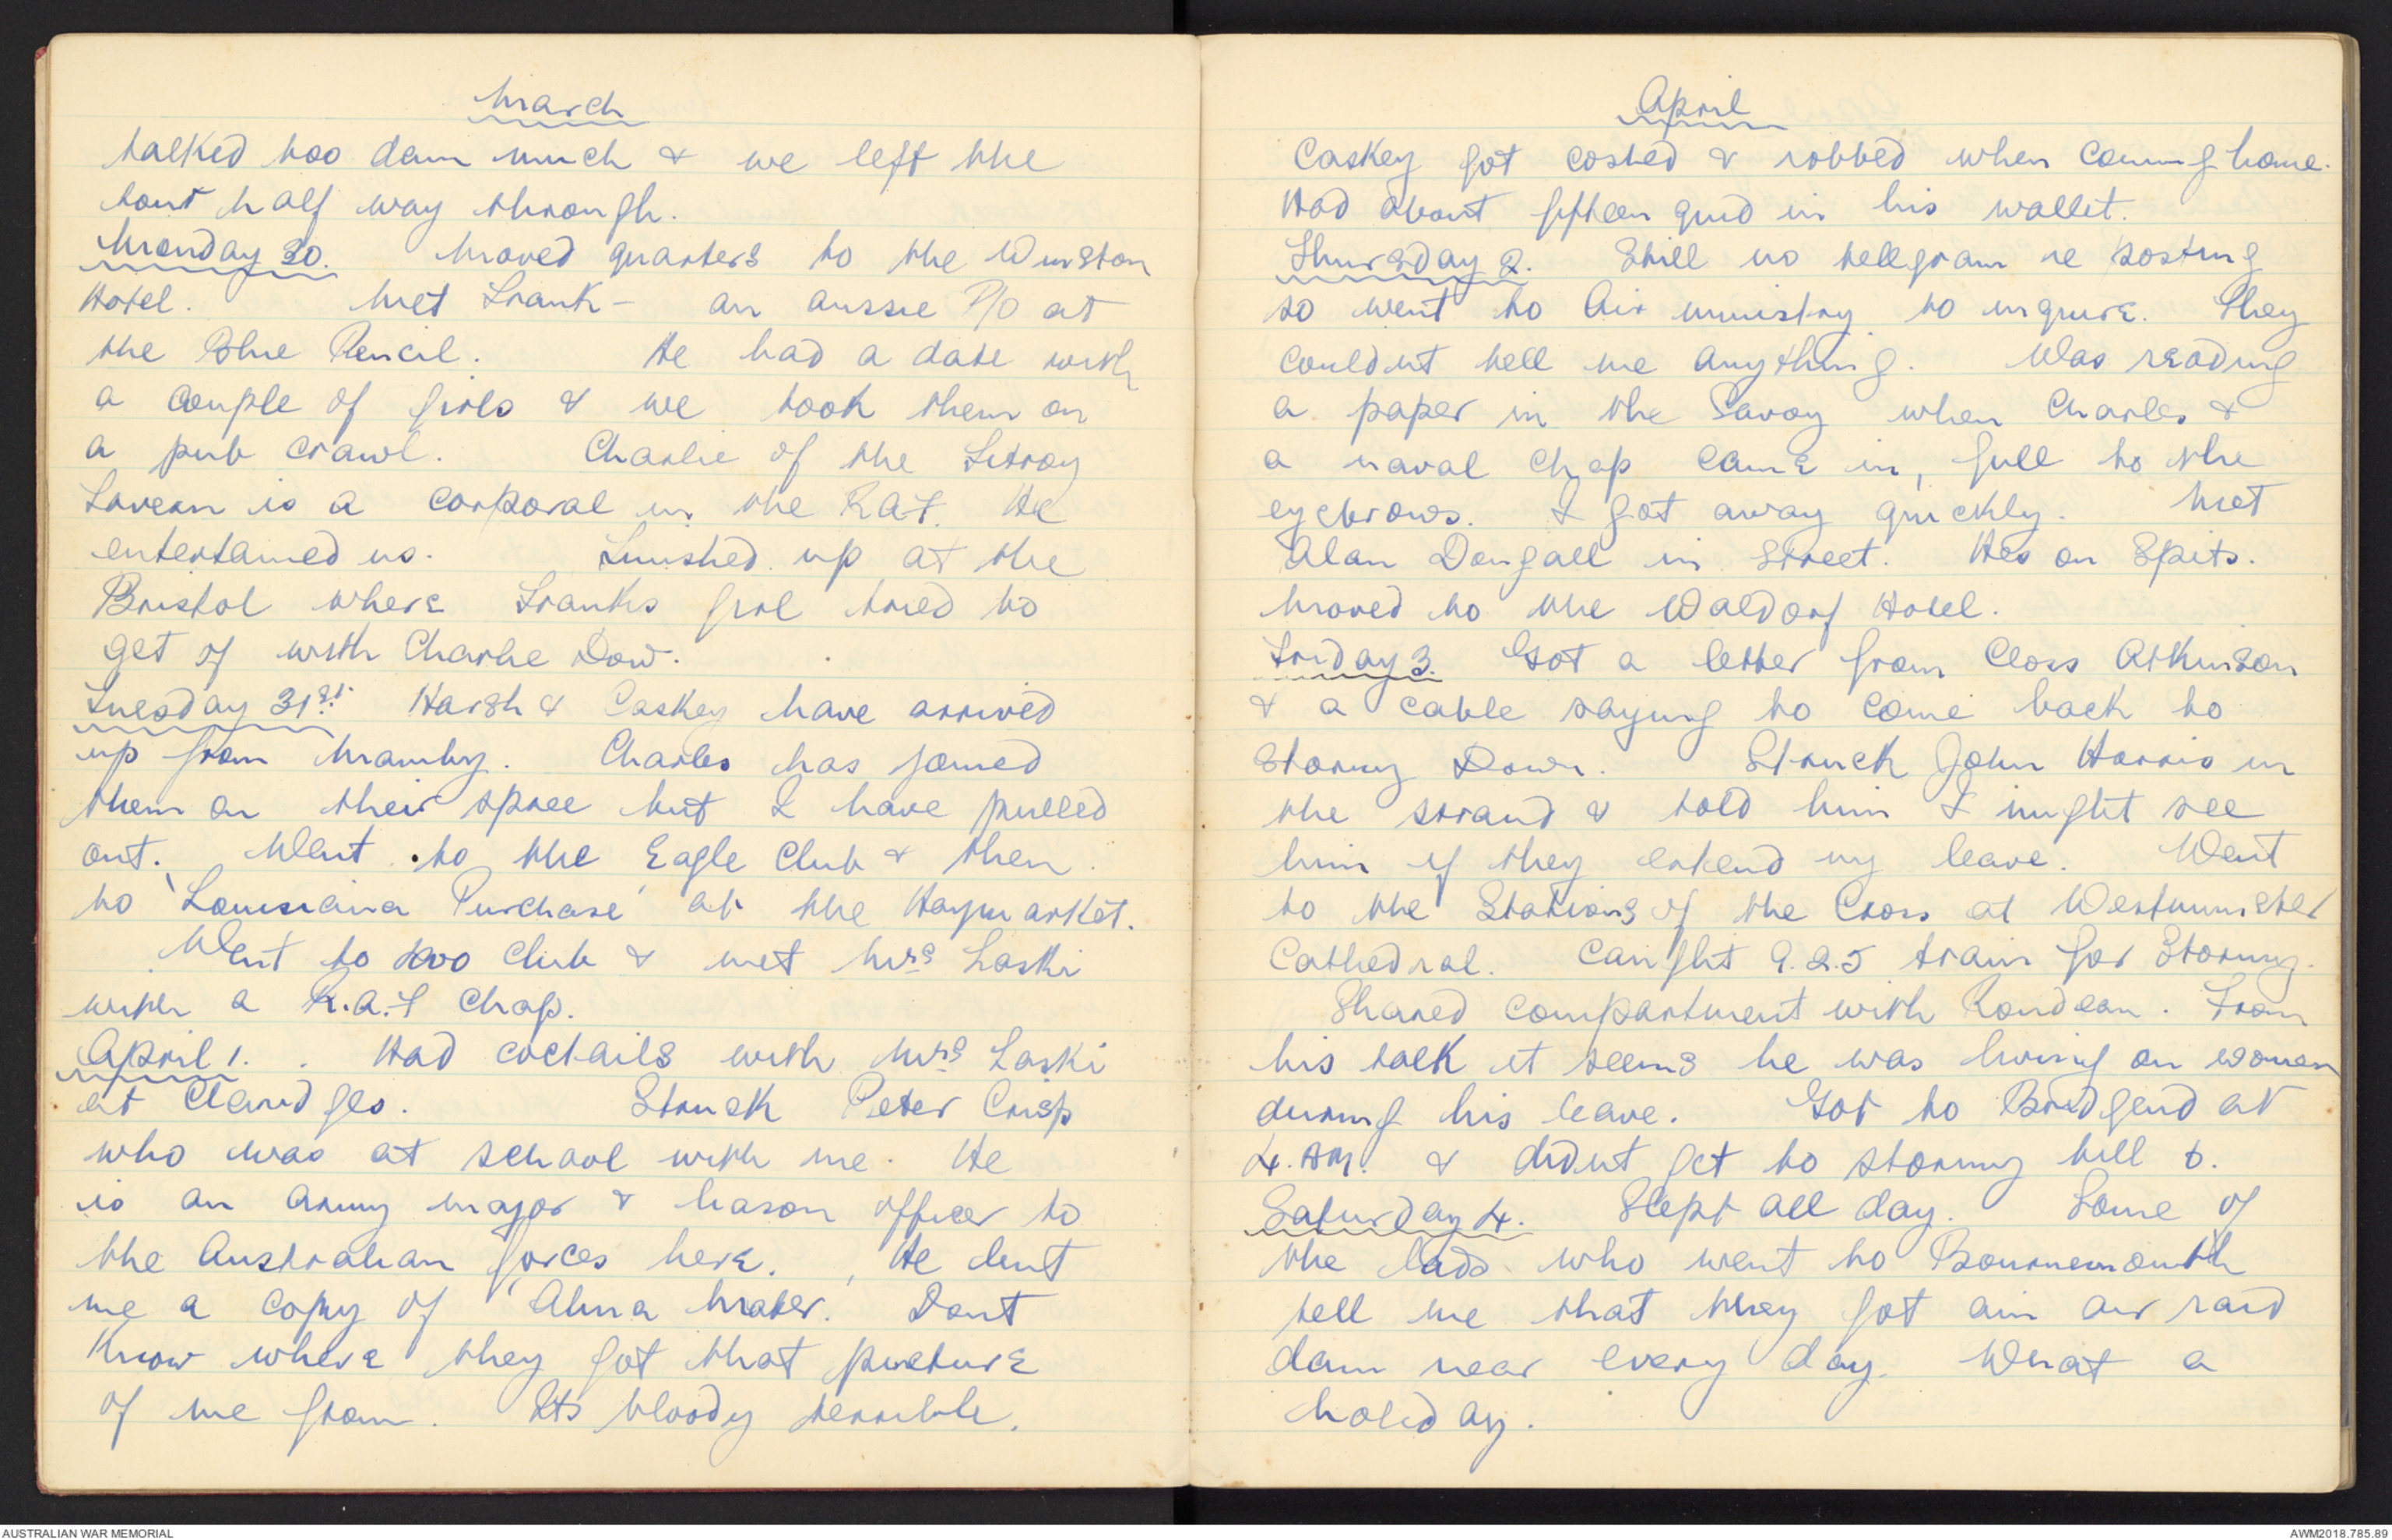 March
talked too dam much & we left the
tour half way through.
Monday 30. Moved quarters to the Winston
Hotel. Met Frank - an aussie P/O at
the Blue Pencil. He had a date with
a couple of girls & we took them on
a pub crawl. Charlie of the
Tavern is a corporal in the RAF. He
entertained us. Finished up at the
Bristol where Franks girl tried to
get of with Charlie Dow.
Tuesday 31st. Harsh & Caskey have arrived
up from Mamby. Charles has joined
them on their spree but I have pulled
out. Went to the Eagle Club & then
to 'Louisiana Purchase' at the Haymarket.
Went to Club & met Mrs Laski
with a R.A.F chap.
April 1. Had coctails with Mrs Laski
at Claridges. Struck Peter Crisp
who was at school with me. He
is an army major & liason officer to
the Australian forces here. He lent
me a copy of 'Alma Mater. Dont
know where they got that picture
of me from. Its bloody terrible.
April
Caskey got coshed & robbed when coming home.
Had about fifteen quid in his wallet.
Thursday 2. Still no tellegram re posting
so went to Air ministry to inquire. They
couldnt tell me anything. Was reading
a paper in the Savoy when Charles &
a naval chap came in, full to the
eyebrows. I got away quickly. Met
Alan Dougall in street. Hes on Spits.
Moved to the Waldorf Hotel.
Friday 3. Got a letter from Closs Atkinson
& a cable saying to come back to
Stormy Down. Struck John Harris in
the strand & told him I might see
him if they extend my leave. Went
to the Stations of the Cross at Westminster
Cathedral. Caught 9.25 train for Stormy.
Shared compartment with Rondeau. From
his talk it seems he was living on women
during his leave. Got to Bridgend at
4. AM. & didnt get to stormy till 6.
Saturday 4. Slept all day. Some of
the lads who went to Bournemouth
tell me that they got ain air raid
dam near every day. What a
holiday.
AUSTRALIAN WAR MEMORIAL
AWM2018.785.89